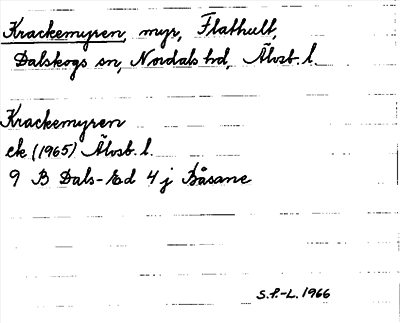 Krackemyren, myr, Flathult,
Dalskogs sn, Nordals hd, Älvsb. l.
Krackemyren
ek (1965) Älvsb. l.
9 B Dals-Ed 4 j Båsane
S.F.-L. 1966